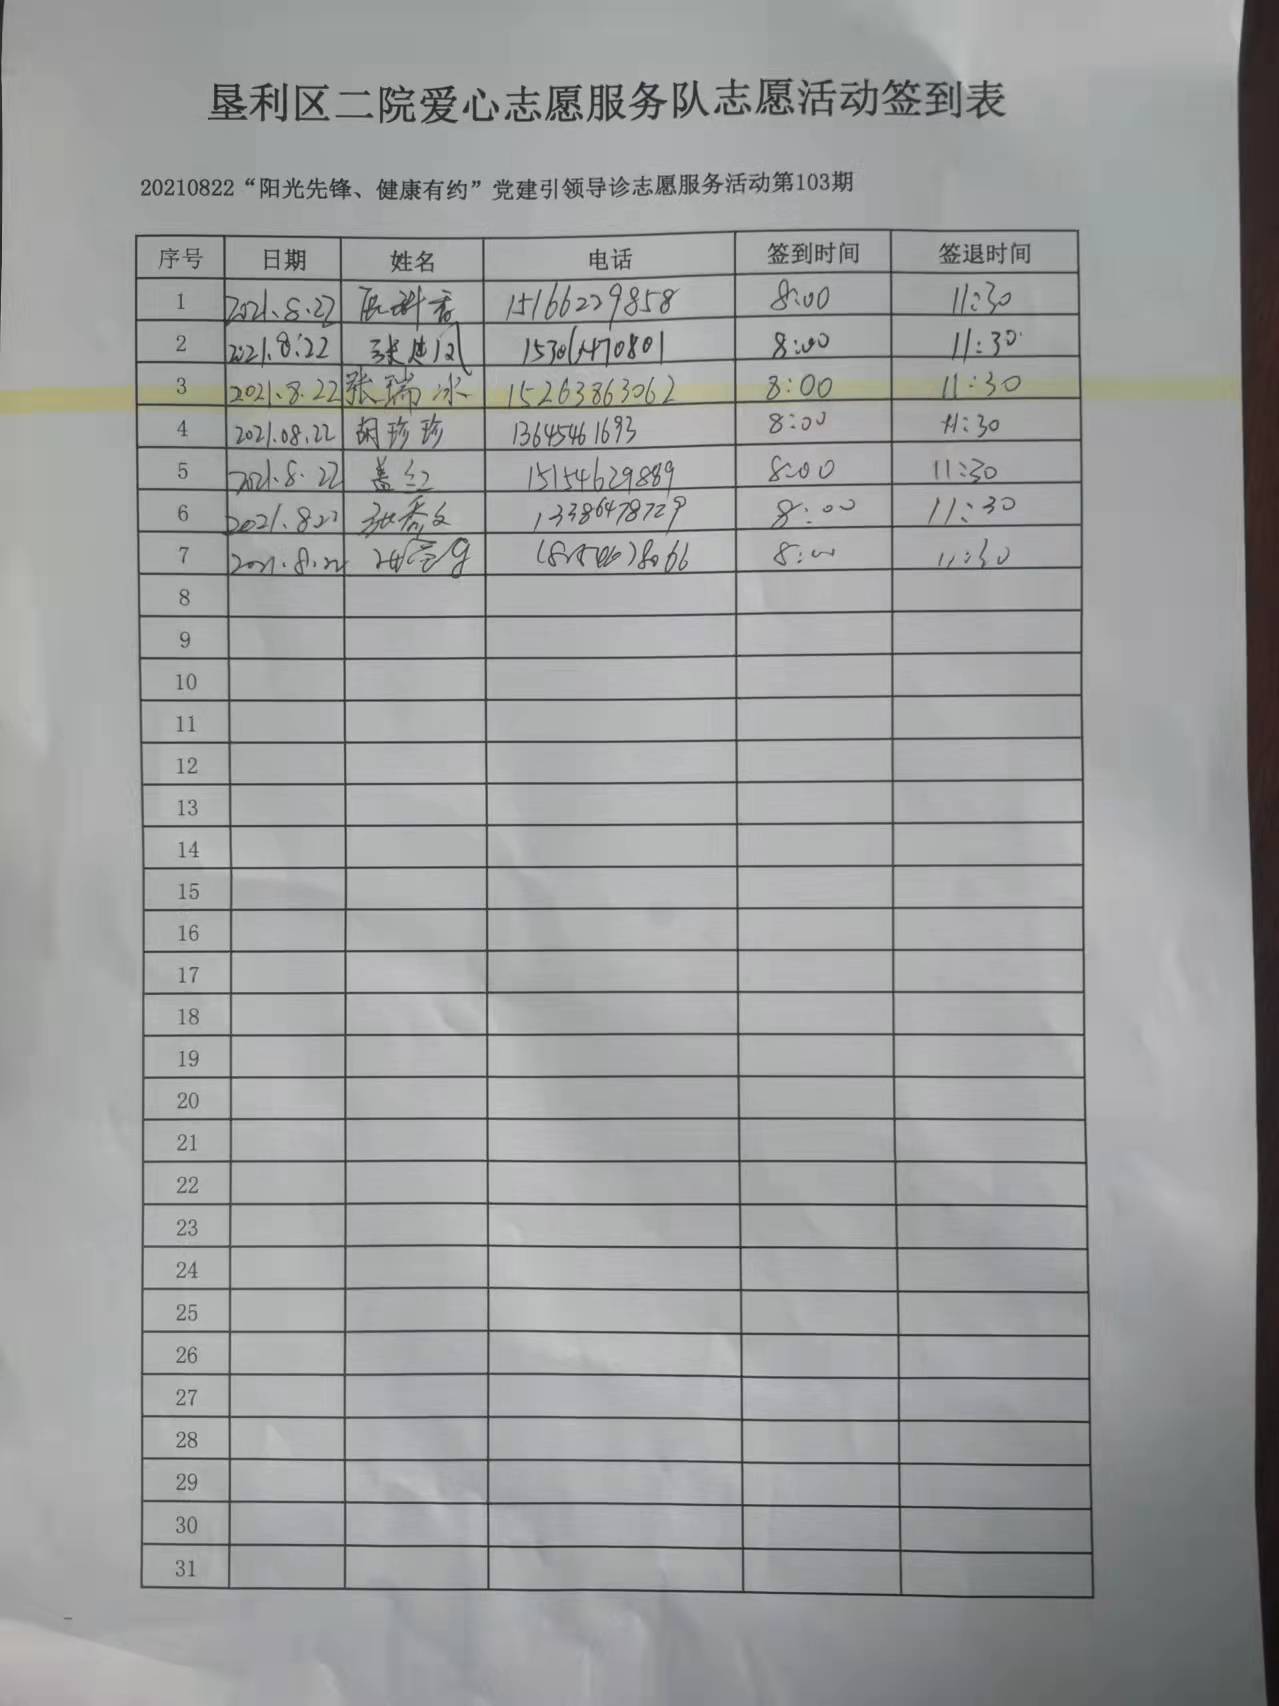 垦利区二院爱心志愿服务队志愿活动签到表
20210822“阳光先锋、健康有约”党建引领导诊志愿服务活动第103期
序号 日期 姓名 电话 签到时间 签退时间
1 2021.8.22 15166229858 8:00 11:30
2 2021.8.22 8:00 11:30
3 2021.8.22 张瑞冰 15263863062 8:00 11:30
4 2021.08.22 胡珍珍 13645461693 8:00 11:30
5 2021.8.22 盖红 15154629889 8:00 11:30
6 2021.8.22 13386478729 8:00 11:30
7 2021.8.22 8:00 11:30
8
9
10
11
12
13
14
15
16
17
18
19
20
21
22
23
24
25
26
27
28
29
30
31